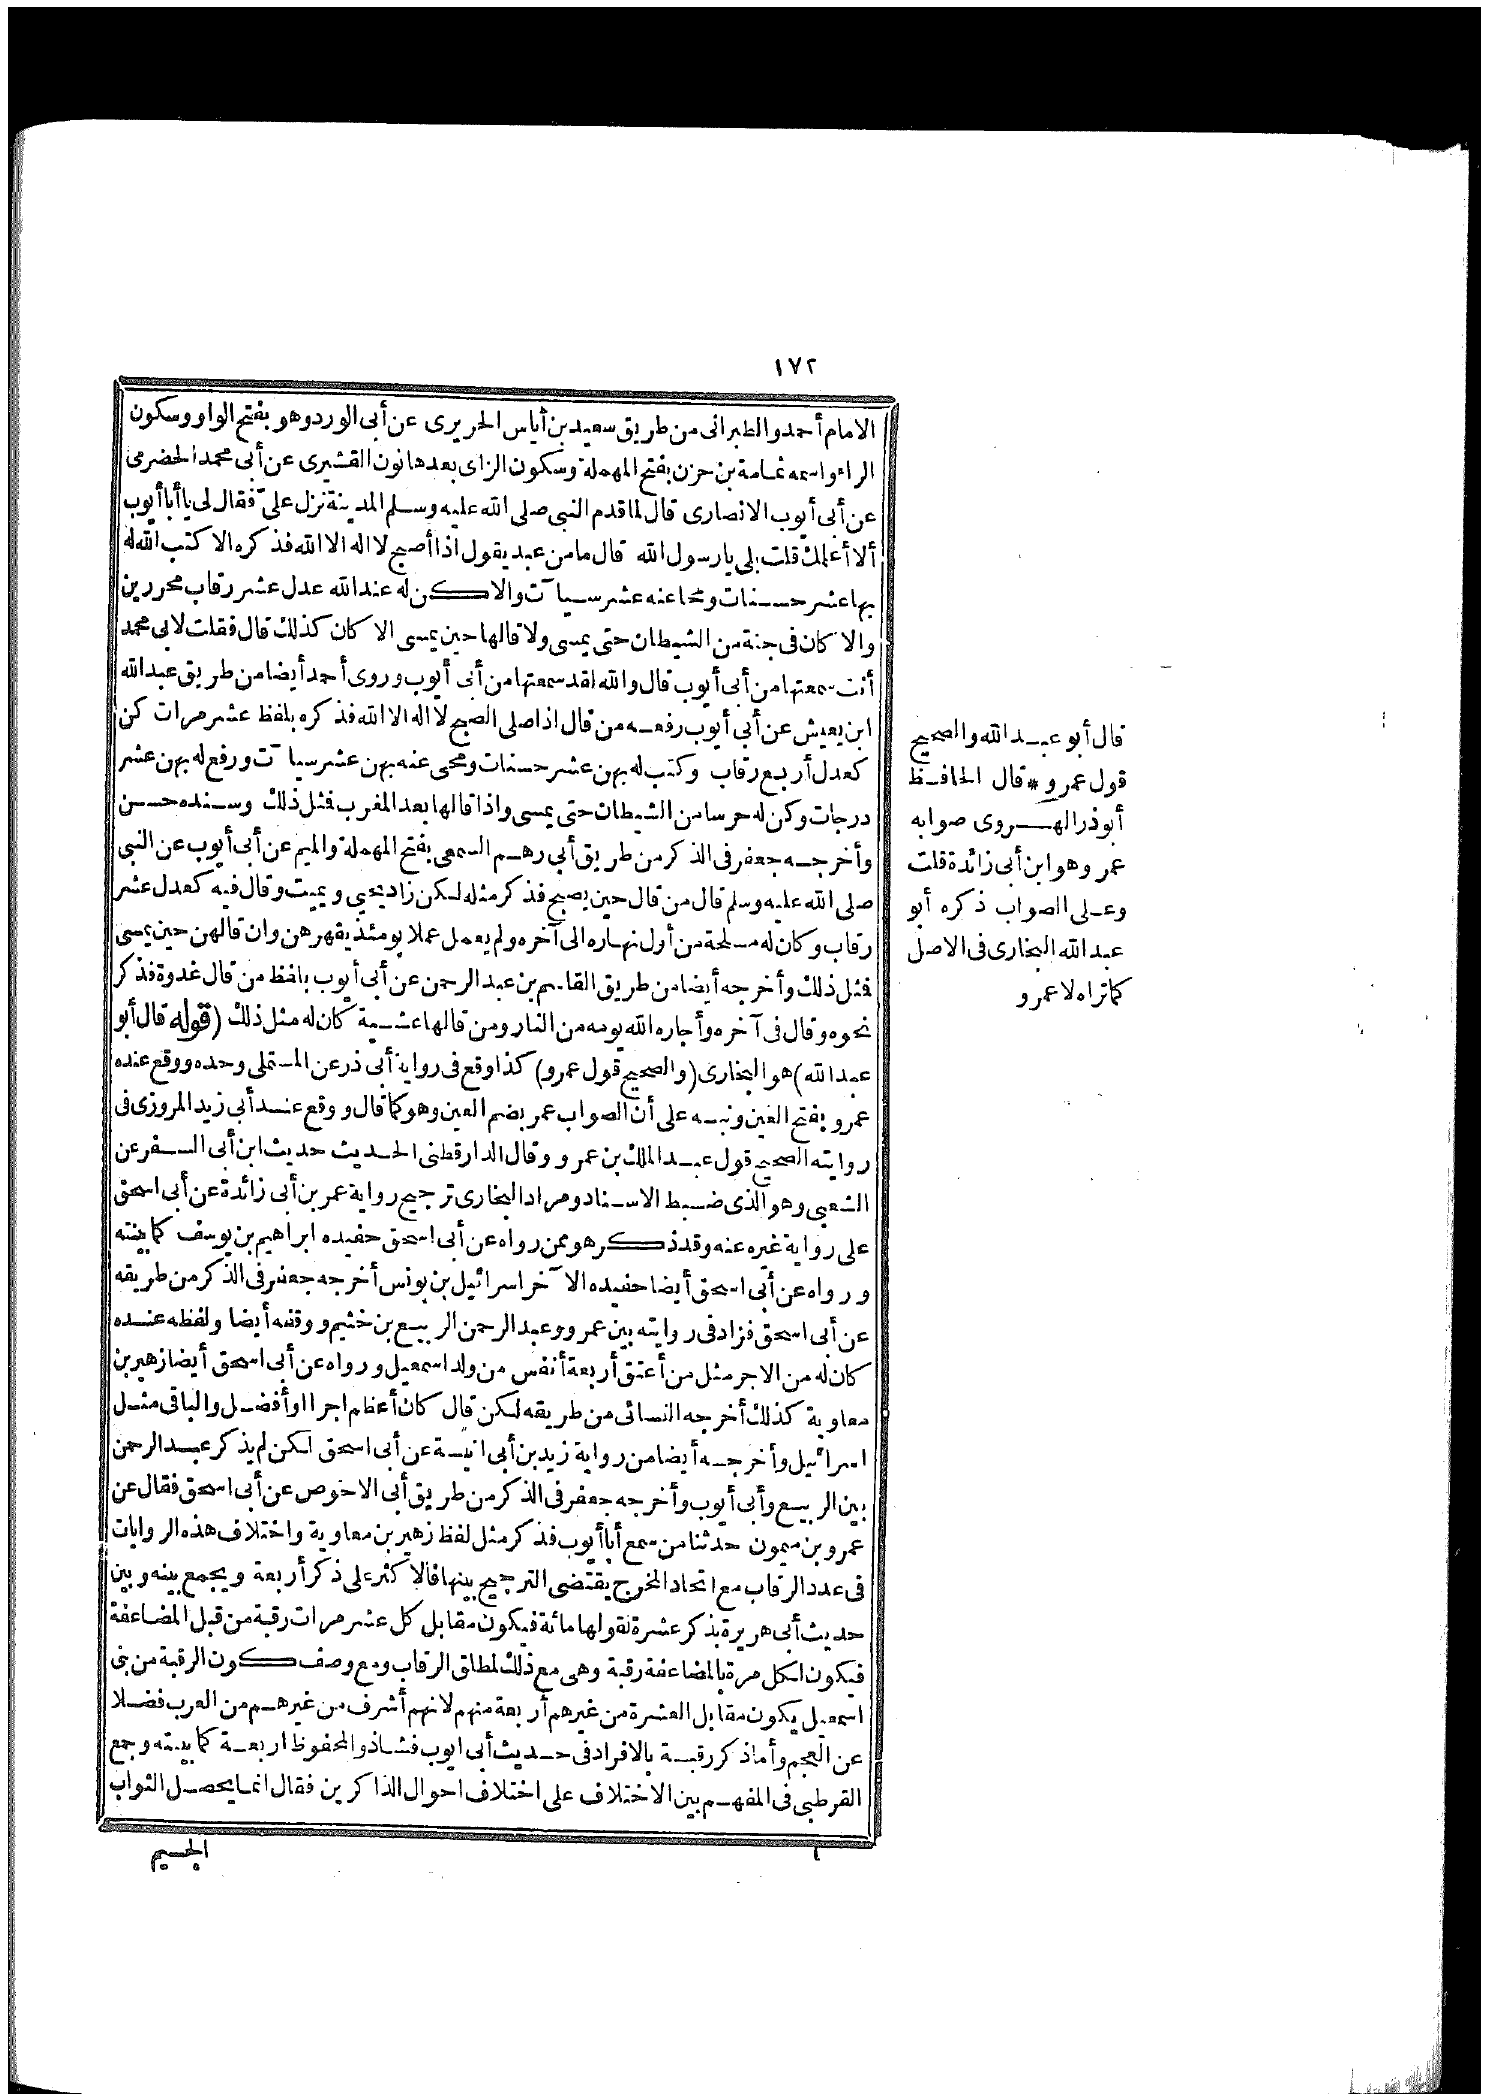 ١٧٢
الامام أحمد والطبرانى من طريق سعيد بن أياس الجريرى عن أبى الورد وهو بفتح الواو وسكون
الراء واسمه ثمامة بن حزن بفتح المهملة وسكون الزاى بعدها نون القشيرى عن أبى محمد الحضرمى
عن أبى أيوب الانصارى قال لما قدم النبى صلى الله عليه وسلم المدينة نزل علىّ فقال لى يا أبا أيوب
ألا أعلمك قلت بلى يا رسول الله قال ما من عبد يقول اذا أصبح لا اله الا الله فذكره الا كتب الله له
بها عشر حسنات ومحا عنه عشر سيآت والا كن له عند الله عدل عشر رقاب محررين
والا كان فى جنة من الشيطان حتى يمسى ولا قالها حين يمسى الا كان كذلك قال فقلت لابى محمد
أنت سمعتها من أبى أيوب قال والله لقد سمعتها من أبى أيوب وروى أحمد أيضا من طريق عبد الله
ابن يعيش عن أبى أيوب رفعه من قال اذا صلى الصبح لا اله الا الله فذكره بلفظ عشر مرات كن
كعدل أربع رقاب وكتب له بهن عشر حسنات ومحى عنه بهن عشر سيآت ورفع له بهن عشر
درجات وكن له حرسا من الشيطان حتى يمسى واذا قالها بعد المغرب فمثل ذلك وسنده حسن
وأخرجه جعفر فى الذكر من طريق أبى رهم السمعى بفتح المهملة والميم عن أبى أيوب عن النبى
صلى الله عليه وسلم قال من قال حين يصبح فذكر مثله لكن زاد يحيى ويميت وقال فيه كعدل عشر
رقاب وكان له مسلحة من أول نهاره الى آخره ولم يعمل عملا يومئذ يقهرهن وان قالهن حين يمسى
فمثل ذلك وأخرجه أيضا من طريق القاسم بن عبد الرحمن عن أبى أيوب بلفظ من قال غدوة فذكر
نحوه وقال فى آخره وأجاره الله يومه من النار ومن قالها عشية كان له مثل ذلك (قوله قال أبو
عبد الله) هو البخارى (والصحيح قول عمرو) كذا وقع فى رواية أبى ذر عن المستملى وحده ووقع عنده
عمرو بفتح العين ونبه على أن الصواب عمر بضم العين وهو كما قال ووقع عند أبى زيد المروزى فى
روايته الصحيح قول عبد الملك بن عمرو وقال الدارقطنى الحديث حديث ابن أبى السفر عن
الشعبى وهو الذى ضبط الاسناد ومراد البخارى ترجيح رواية عمر بن أبى زائدة عن أبى اسحق
على رواية غيره عنه وقد ذكر هو ممن رواه عن أبى اسحق حفيده ابراهيم بن يوسف كما بينته
ورواه عن أبى اسحق أيضا حفيده الآخر اسرائيل بن يونس أخرجه جعفر فى الذكر من طريقه
عن أبى اسحق فزاد فى روايته بين عمرو وعبد الرحمن الربيع بن خثيم ووقفه أيضا ولفظه عنده
كان له من الاجر مثل من أعتق أربعة أنفس من ولد اسمعيل ورواه عن أبى اسحق أيضا زهير بن
معاوية كذلك أخرجه النسائى من طريقه لكن قال كان أعظم اجرا او أفضل والباقى مثل
اسرائيل وأخرجه أيضا من رواية زيد بن أبى انيسة عن أبى اسحق لكن لم يذكر عبد الرحمن
بين الربيع وأبى أيوب وأخرجه جعفر فى الذكر من طريق أبى الاحوص عن أبى اسحق فقال عن
عمرو بن ميمون حدثنا من سمع أبا أيوب فذكر مثل لفظ زهير بن معاوية واختلاف هذه الروايات
فى عدد الرقاب مع اتحاد المخرج يقتضى الترجيح بينها فالاكثر على ذكر أربعة ويجمع بينه وبين
حديث أبى هريرة بذكر عشرة لقولها مائة فيكون مقابل كل عشر مرات رقبة من قبل المضاعفة
فيكون لكل مرة بالمضاعفة رقبة وهى مع ذلك لمطلق الرقاب ومع وصف كون الرقبة من بنى
اسمعيل يكون مقابل العشرة من غيرهم أربعة منهم لانهم أشرف من غيرهم من العرب فضلا
عن العجم وأما ذكر رقبة بالافراد فى حديث أبى ايوب فشاذ والمحفوظ اربعة كما بينته وجمع
القرطبى فى المفهم بين الاختلاف على اختلاف احوال الذاكرين فقال انما يحصل الثواب
الجسيم
قال أبو عبد الله والصحيح
قول عمرو * قال الحافظ
أبو ذر الهروى صوابه
عمر وهو ابن أبى زائدة قلت
وعلى الصواب ذكره أبو
عبد الله البخارى فى الاصل
كما تراه لا عمرو